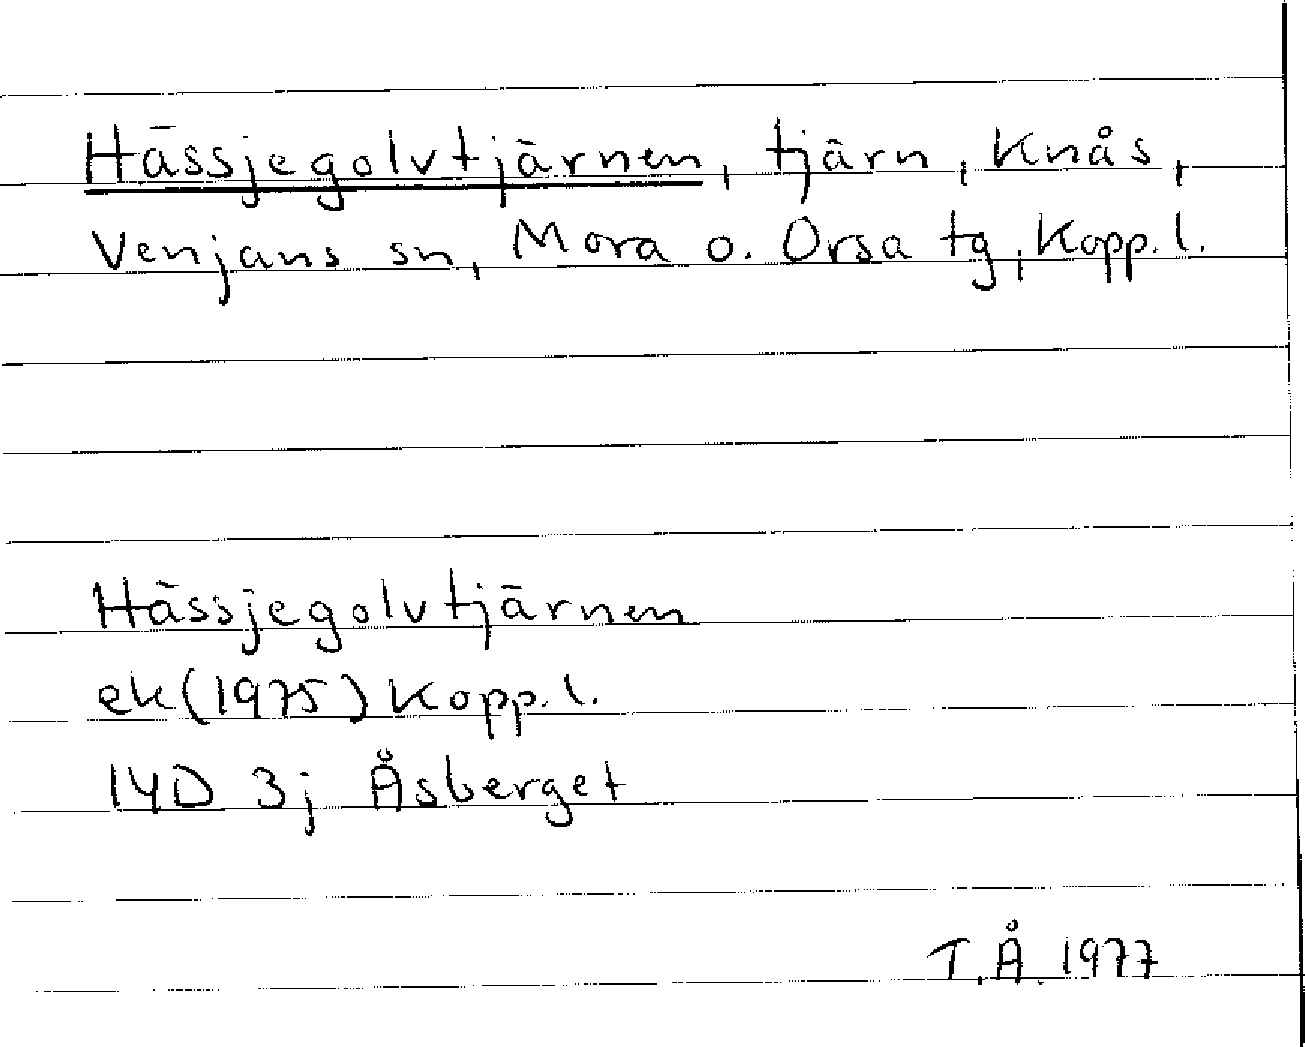 Hässjegolvtjärnen, tjärn, Knås,
Venjans sn, Mora o. Orsa tg, Kopp. l.
Hässjegolvtjärnen
ek (1975) Kopp. l.
14D 3j Åsberget
T.Å. 1977